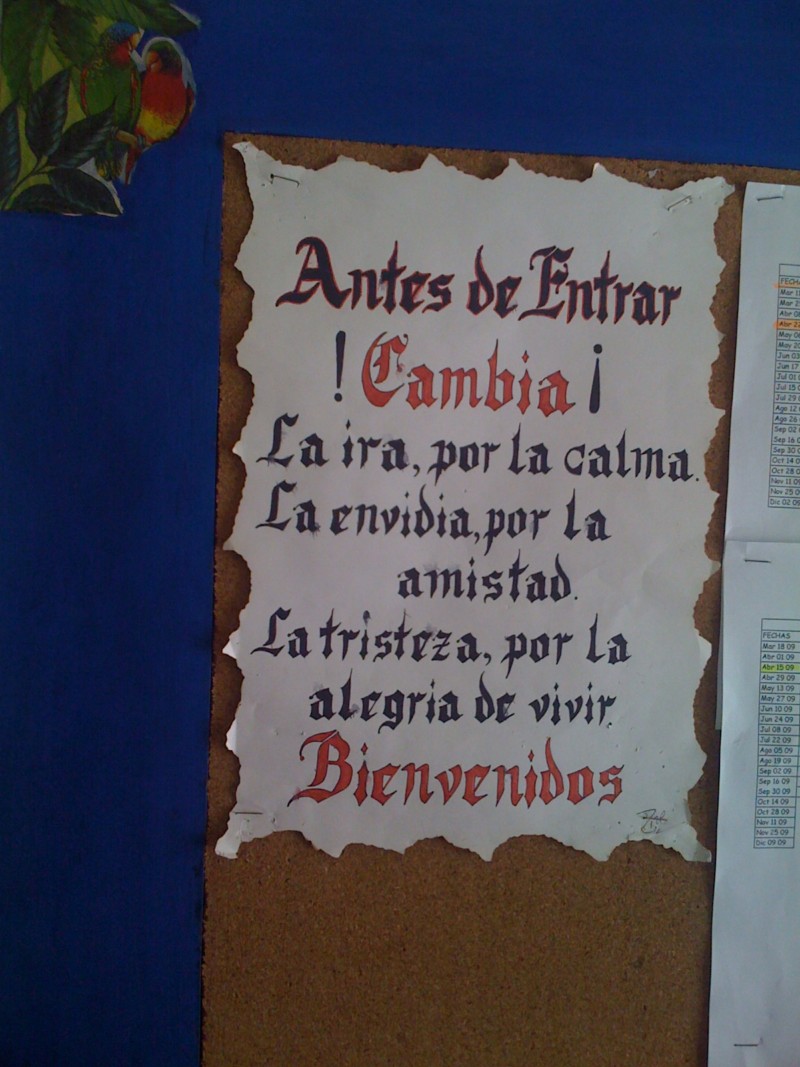 Antes de Entrar
! Cambia ¡
La ira, por la calma.
La envidia, por la
amistad.
La tristeza, por la
alegria de vivir.
Bienvenidos
FECHAS
Mar 18 09
Abr 01 09
Abr 15 09
Abr 29 09
May 13 09
May 27 09
Jun 10 09
Jun 24 09
Jul 08 09
Jul 22 09
Ago 05 09
Ago 19 09
Sep 02 09
Sep 16 09
Sep 30 09
Oct 14 09
Oct 28 09
Nov 11 09
Nov 25 09
Dic 09 09